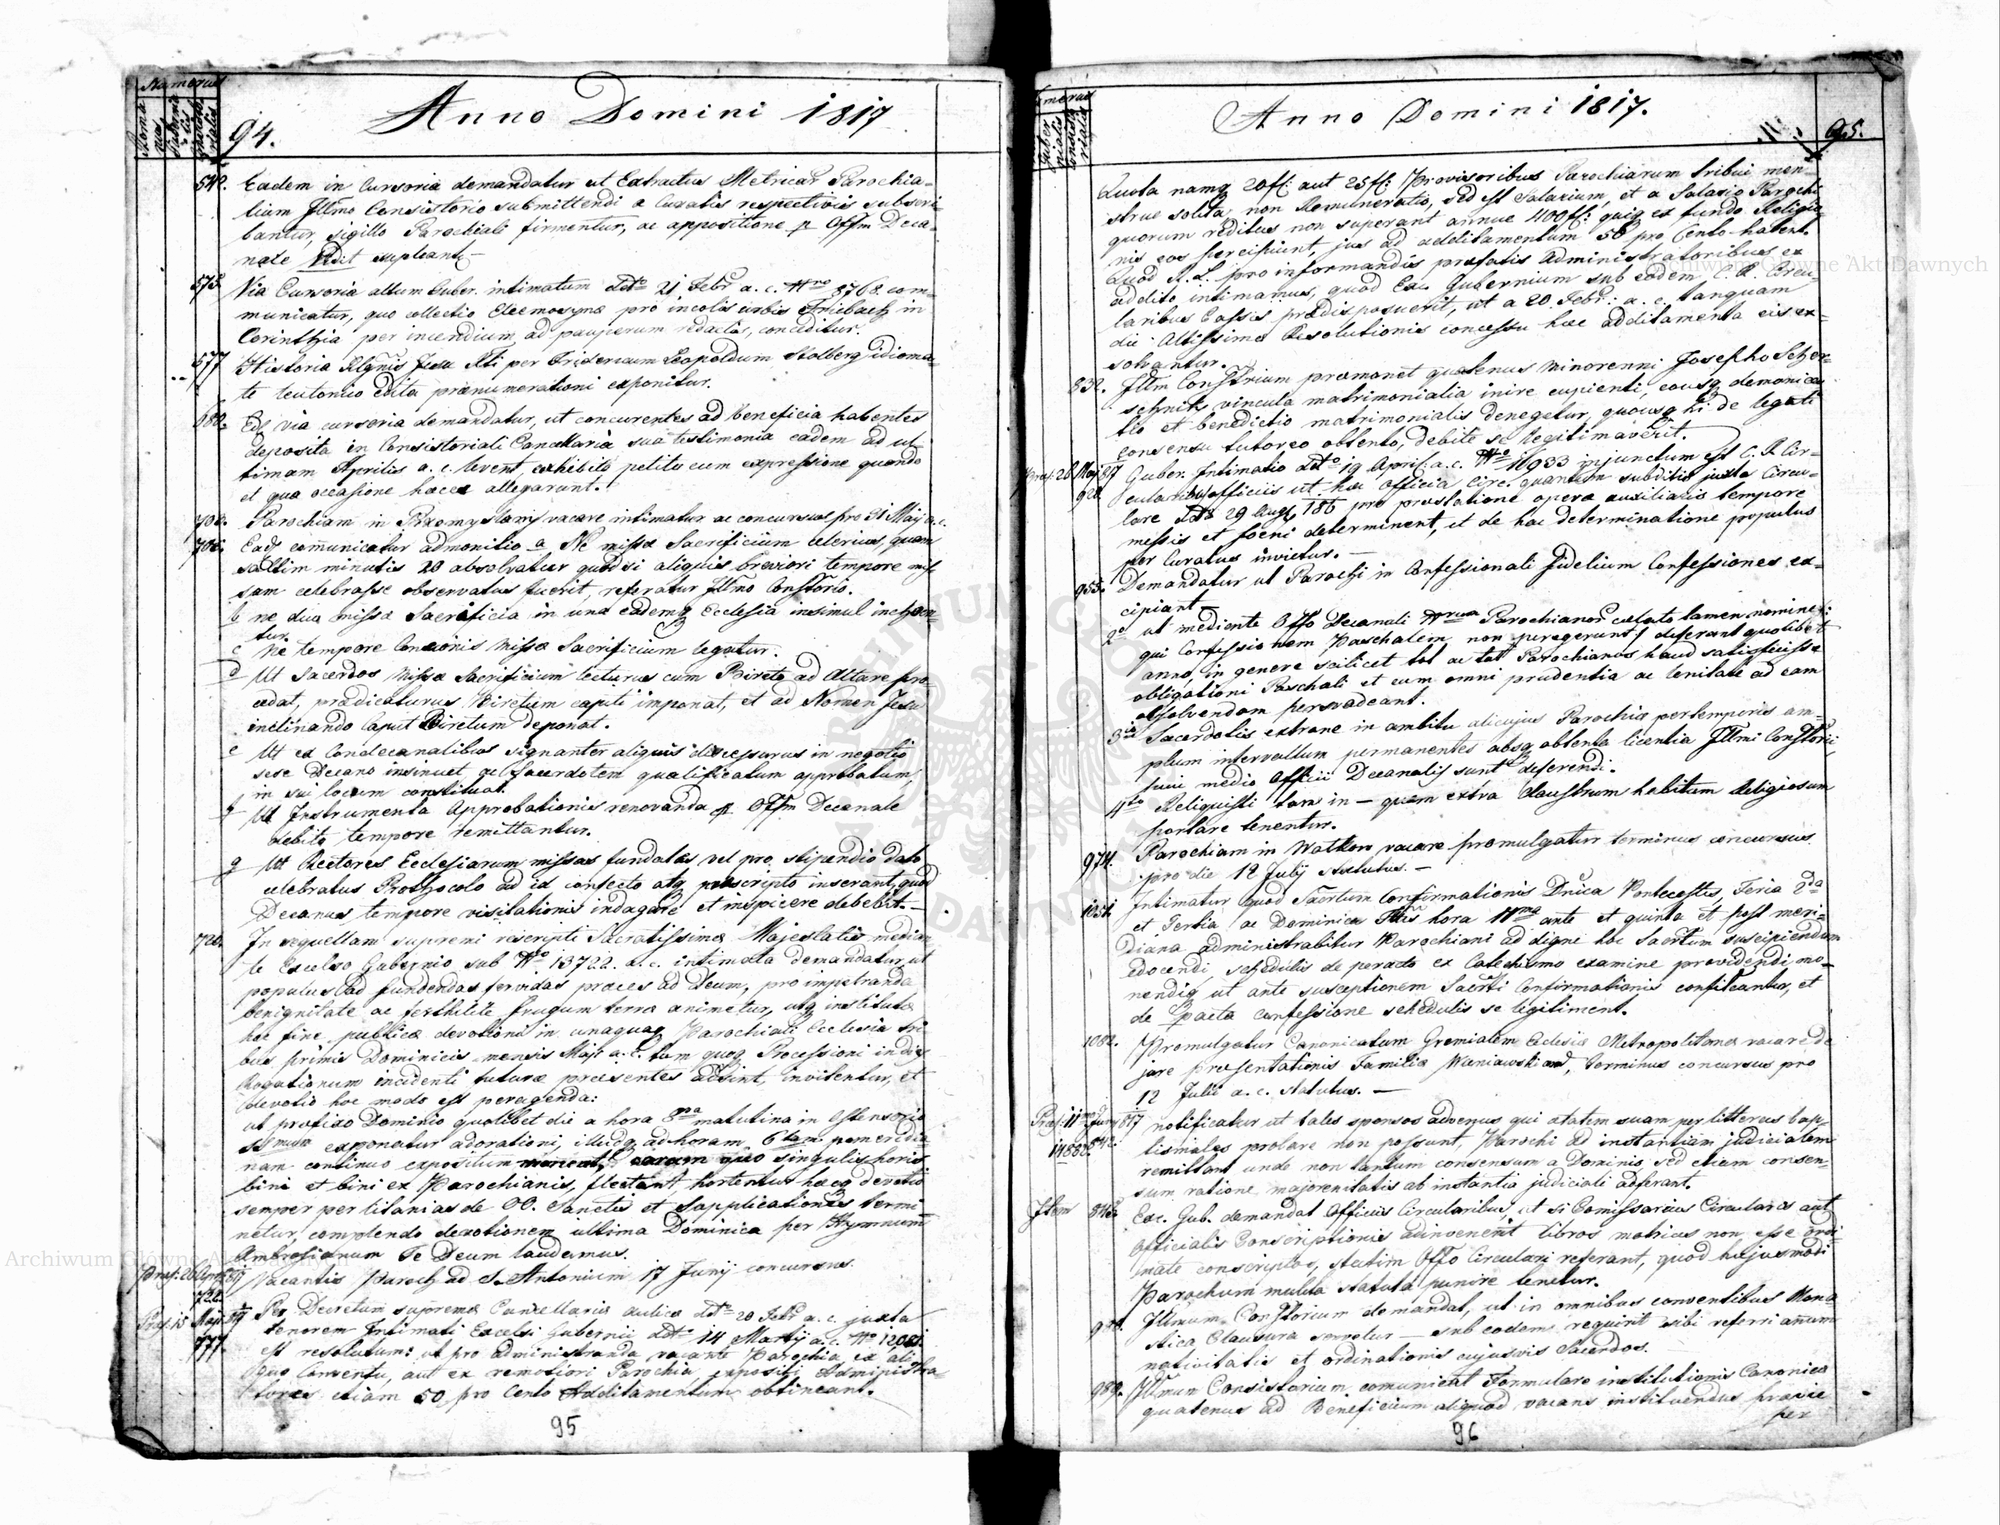 Numerus
94.
Anno Domini 1817
542. Eadem in Cursoria demandatur ut Extractus Metricar Parochia=
lium Illmo Consistorio submittendi a Curatis respectivis subscri=
bantur, sigillo Parochiali firmentur, ac appositione p Offm Deca=
nale Vidit supleantr
575. Via Cursoria altum Guber. intimatum ddto 21 Febr a. c. Nro 8768 com=
municatur, quo collectio Eleemosynæ pro incolis urbis Friebach in
Corinthia per incendium ad pauperum redactis, conceditur.
577 Historia Rlgnis Jesu Xti per Fridericum Leopoldum Stolberg idioma=
te teutonico edita prænumerationi exponitur.
680. Eaq via cursoria demandatur, ut concurentes ad beneficia habentes
deposita in Consistoriali Cancellaria sua testimonia eadem ad ul
timam Aprilis a. c. levent, exhibito petito cum expressione quando
et qua occasione hæcce allegarunt.
702. Parochiam in vacare intimatur ac concursus pro 31 Maij a. c.
705. Eadq comunicatur admonitio a Ne missæ Sacrificium celerius, quam
saltim minutis 20 absolvatur quod si aliquis breviori tempore mis
sam celebrasse observatus fuerit, referatur Illmo Constorio.
b ne duo missæ Sacrificia in una eademq Ecclesia insimul inchoen
tur.
c Ne tempore Concionis Missæ Sacrificium legatur.
d Ut Sacerdos Missæ Sacrificium lecturus cum Bireto ad Altare pro=
cedat, prædicaturus Biretum capiti imponat, et ad Nomen Jesu
inclinando caput Biretum deponat.
e Ut ex Condecanalibus signanter aliquis discessurus in negotio
sese Decano insinuet, ac Sacerdotem qualificatum approbatum,
in sui locum constituat.
f Ut Instrumenta Approbationis renovanda p Offm Decanale
debito tempore remittantur.
g Ut Rectores Ecclesiarum missas fundatas vel pro stipendio dato
celebratas Prothocolo ad id confecto atq præscripto inserant, quod
Decanus tempore visitationis indagare et inspicere debebit.
720. In sequellam supremi rescripti Sacratissimæ Majestatis median
te Excelso Gubernio sub Nro 13722 a. c. intimata demandatur, ut
populus ad fundendas fervidas præces ad Deum, pro impetranda
benignitate ac fertilite frugum terræ animetur, utq instituta
hoc fine publica devotioni in unaquaq Parochiali Ecclesia tri
bus primis Dominicis mensis Maji a. c. tam quoq Processioni in die
Rogationum incidenti futuræ præsentes adsint, invitentur, et
devotio hoc modo est peragenda:
ut præfixo Dominio quolibet die a hora 8va matutina in Ostensorio
SSmum exponatur adorationi, illudq ad horam 6tam pomeridia
nam continuo expositum maneat, coram quo singulis horis
bini et bini ex Parochianis, flectant hortentur hæcq devotio
semper per litanias de OO. Sanctis et Supplicationes termi=
netur, complendo devotionem ultima Dominica per Hymnum
Ambrosianum Te Deum laudamus.
Præs. 26 Apr. 817
722. Vacantis Paroch ad S. Antonium 17 Junij concursus.
Præs. 15 Maji 817
777. Per Decretum supremæ Cancellariæ aulicæ ddto 20 Febr a. c. juxta
tenorem Intimati Excelsi Gubernii ddto 14 Martij a. c. No
est resolutum: ut pro administranda vacante Parochia ex ali
quo Conventu, aut ex remotiori Parochia expositi Administra=
tores etiam 50 pro Cento Additamentum obtineant.
95
Numerus
Anno Domini 1817.
95.
Quota namq 20 fl: aut 25 fl: Provisoribus Parochiarum tribui men=
strue solita, non Remuneratio, sed est Salarium, et a Salario Parochi
quorum reditus non superant annue 400 fl: quiq ex fundo Religio
nis eos percipiunt, jus ad additamentum 50 pro Cento habent.
Quod A. L. pro informandis præfatis Administratoribus ex
addito intimamus, quod Exc. Gubernium sub eadem C. R. Circu
laribus Cassis prædisposuerit, ut a 20 Febr: a. c. tanquam
die Altissimæ Resolutionis concessu hæc additamenta eis ex=
solvantur.
832. Illm Constrium præmonet quatenus minorenni Josepho Scher=
schnik vincula matrimonialia inire cupienti, eousq demonica
tio et benedictio matrimonialis denegetur, quousq hi de legali
consensu tutoreo obtento, debite se legitimaverit.
Præs. 28 Maj 817
920. Guber. Intimatio ddto 19 April. a. c. No 16933 injunctum est C. R. Cir=
cularibus officiis ut hæ officia Circ. quantum subditis juxta Circu=
lare ddto 29 Augi 786 pro præstatione operæ auxiliaris tempore
messis et foeni determinent, et de hac determinatione populus
per Curatus invietur.
955. Demandatur ut Parochi in Confessionali fidelium Confessiones ex=
cipiant
2o ut mediante Offo Decanali Nrum Parochianor celato tamen nomine:
qui Confessionem Paschalem non peregerunt / deferant quolibet
anno, in genere scilicet tot ac tot Parochianos haud satisfecisse
obligationi Paschali et eum omni prudentia ac lenitate ad eam
absolvendam persvadeant.
3io Sacerdotes extranei in ambitu alicujus Parochiæ per temporis am=
plum intervallum permanentes absq obtenta licentia Illmi Constorii
sum medio Officii Decanalis sunt deferendi.
4to Religiosi tam in — quam extra Claustrum habitum Religiosum
portare tenentur.
974. Parochiam in vacare promulgatur terminus concursus
pro die 12 Julij statutus. —
1051. Intimatur quod Sacrtum Confirmationis Dnica Pentecostes, Feria 2da
et Tertia ac Dominica SStis hora 11ma ante et quinta et post meri=
diana administrabitur Parochiani ad digne hoc Sacrtum suscipiendum
edocendi, schedulis de peracto ex Catechismo examine providendi mo=
nendiq ut ante susceptionem Sacrti Confirmationis confiteantur, et
de pacta confessione schedulis se legitiment.
1082. Promulgatur Canonicatum Gremialem Ecclesiæ Metropolitanæ vacare de
jure præsentationis Familiæ Wieniawskianæ, terminus concursus pro
12 Julii a. c. statutus. —
Præs. 11 Junij 817
notificatur ut tales sponsos advenus qui ætatem suam per litteras bap=
tismales probare non possunt, Parochi ad instantiam judicialem
remittant unde non tantum consensum a Dominis sed etiam consen=
sum ratione majorenitatis ab instantia judiciali adferant.
Item 848. Exc. Gub. demandat Officiis Circularibus, ut si Comissarius Circularis aut
Officialis Conscriptionis adinvenerit libros metricas non esse ordi
nate conscriptos, statim Offo Circulari referant, quod hujusmodi
Parochum mulcta statuta punire tenetur.
Illmum Constorium demandat, ut in omnibus conventibus Mona
stica Clausura servetur — sub eodem requirit sibi referri annum
nativitatis et ordinationis cujusvis Sacerdos.
989. Illmum Consistorium comunicat Formulare institutionis Canonicæ
quatenus ad Beneficium aliquod vacans instituendus prævie
per
96
Archiwum Główne Akt Dawnych
Archiwum Główne Akt Dawnych